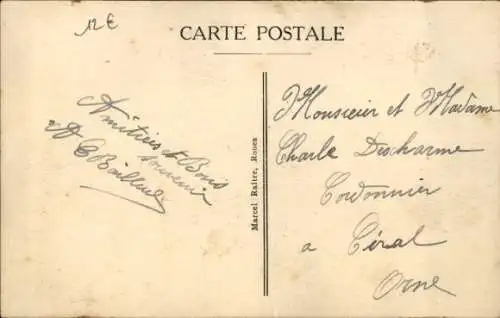 12€
CARTE POSTALE
Amitiés et Bons
souvenir
Marcel Raitre, Rouen
Monsieur et Madame
Charle Descharme
Cordonnier
a Céral
Orne